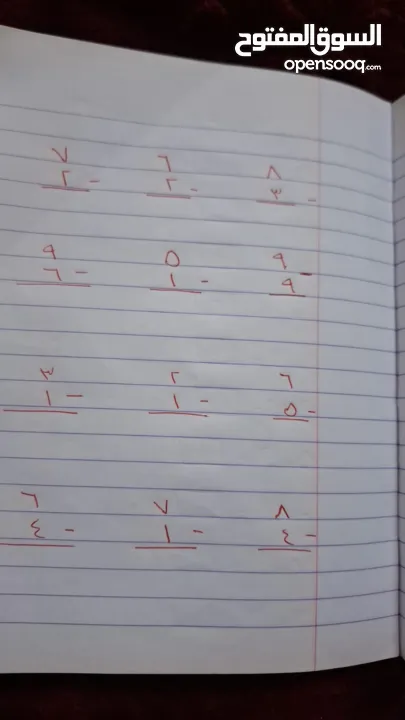 السوق المفتوح
opensooq.com
٨ ٦ ٧
- ٣ - ٢ - ٢
٩ ٥ ٩
- ٩ - ١ - ٦
٦ ٢ ٣
- ٥ - ١ - ١
٨ ٧ ٦
- ٤ - ١ - ٤